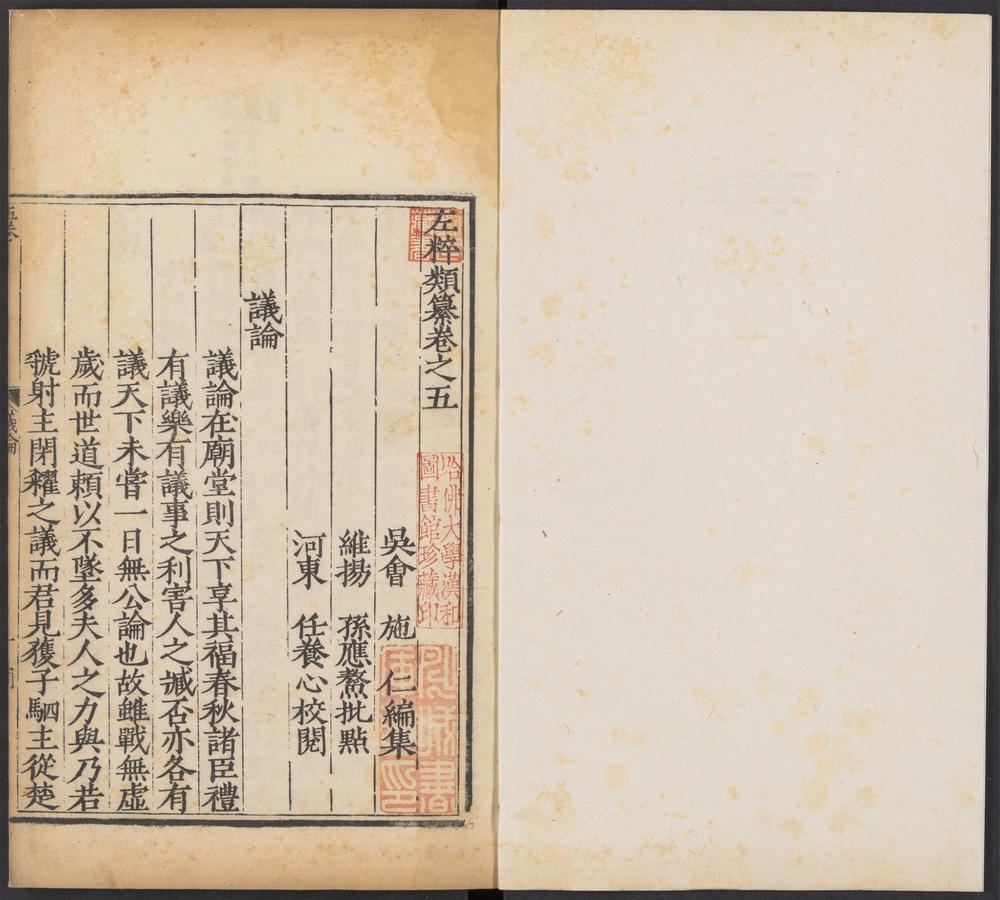 左粹類纂卷之五
吳會　施　仁編集
維揚　孫應鰲批點
河東　任養心校閱
議論
議論在廟堂則天下享其福春秋諸臣禮
有議樂有議事之利害人之臧否亦各有
議天下未嘗一日無公論也故雖戰無虛
歲而世道頼以不墜多夫人之力與乃若
虢射主閉糴之議而君見獲子駟主從楚
哈佛大學漢和
圖書館珍藏印
議論